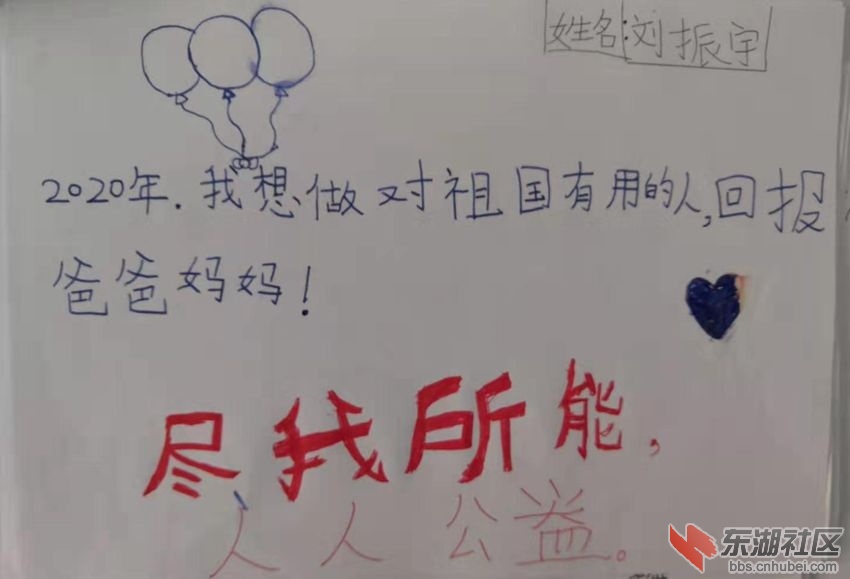 姓名:刘振宇
2020年.我想做对祖国有用的人,回报
爸爸妈妈!
尽我所能,
人人公益。
东湖社区
bbs.cnhubei.com